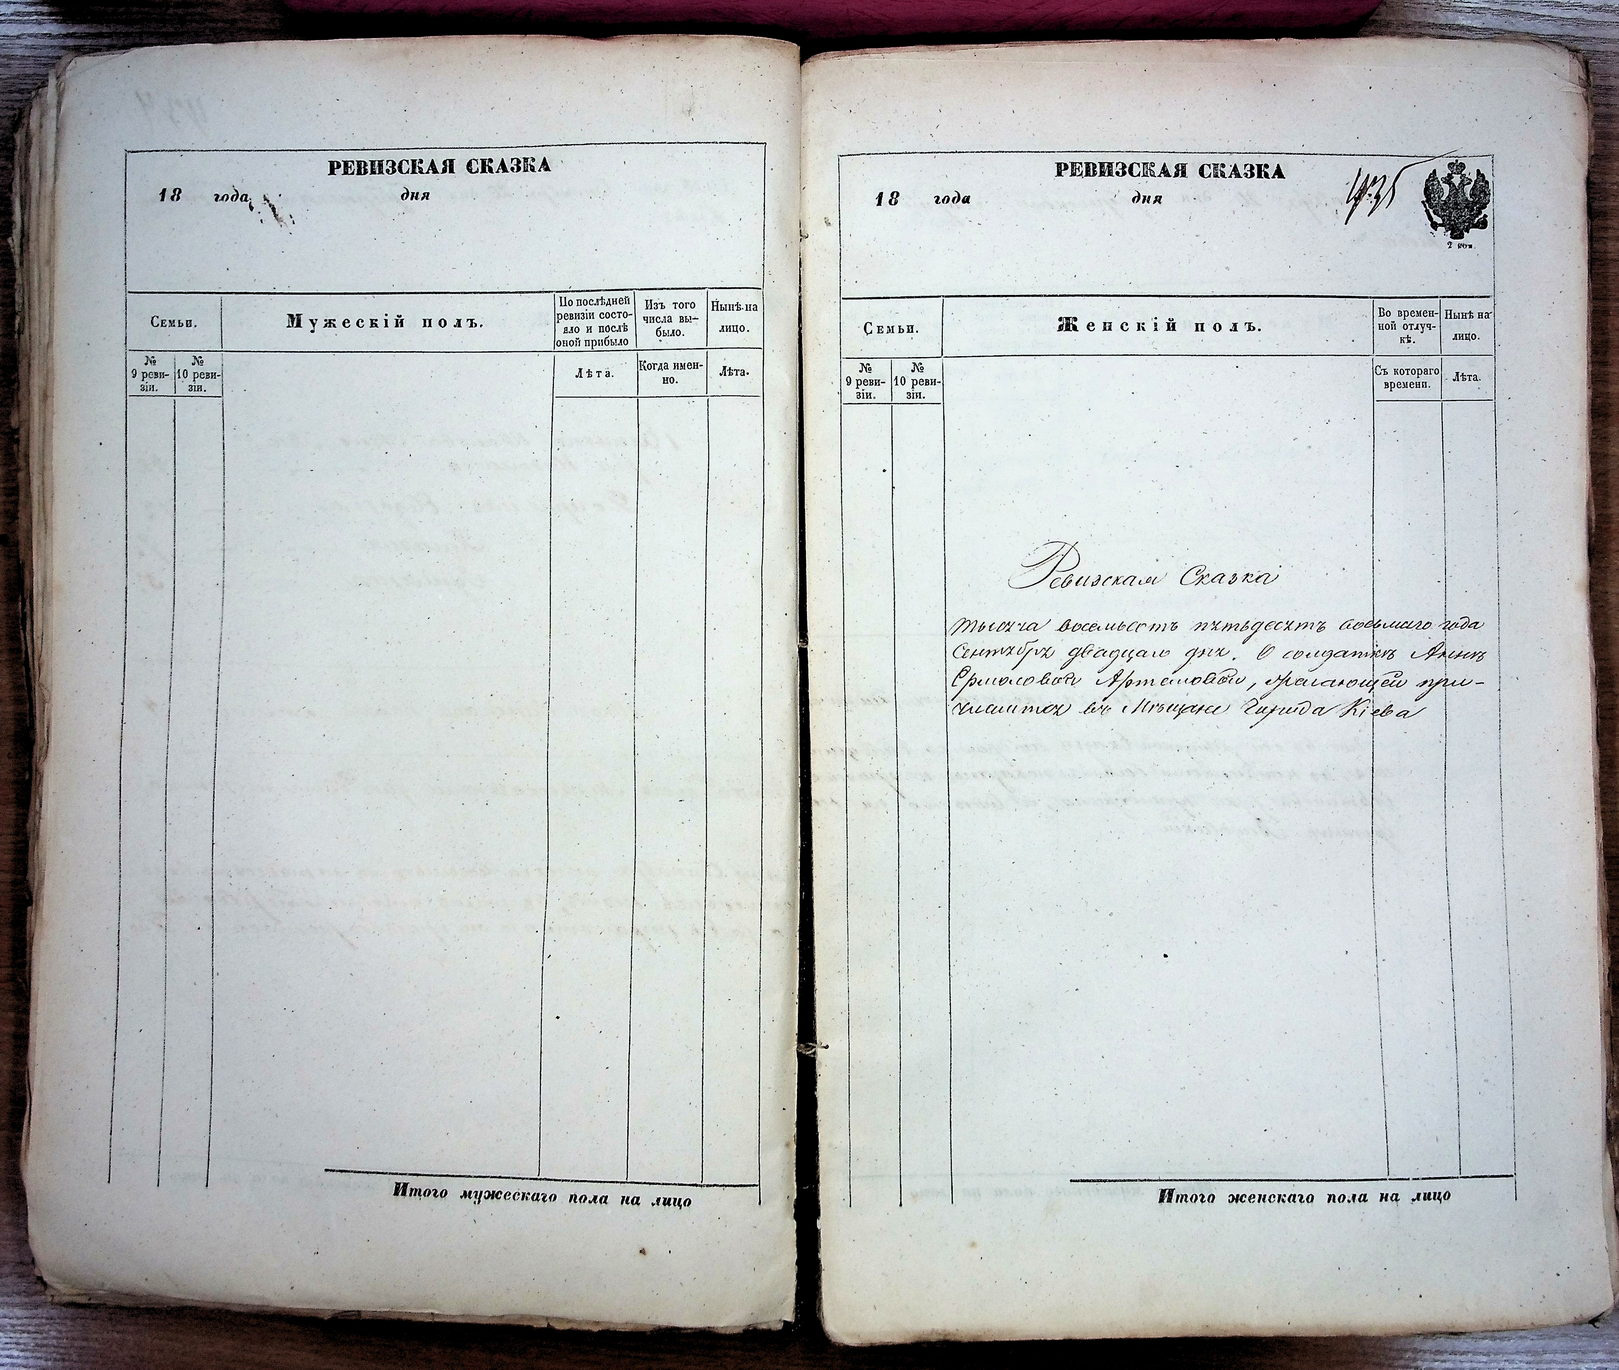 РЕВИЗСКАЯ СКАЗКА
18 года дня
Семьи.
Мужескій полъ.
По послѣдней ревизіи состояло и послѣ оной прибыло
Изъ того числа выбыло.
Нынѣ на лицо.
№ 9 ревизіи.
№ 10 ревизіи.
Лѣта.
Когда именно.
Лѣта.
Итого мужескаго пола на лицо
РЕВИЗСКАЯ СКАЗКА
18 года дня
435
2 коп.
Семьи.
Женскій полъ.
Во временной отлучкѣ.
Нынѣ на лицо.
№ 9 ревизіи.
№ 10 ревизіи.
Съ котораго времени.
Лѣта.
Ревизская Сказка
тысяча восемьсотъ пятьдесятъ восьмаго года
Сентября двадцаго дня. О солдаткѣ Аннѣ
Ермоловой Артемовой, желающей при-
числится въ Мѣщане Города Кіева
Итого женскаго пола на лицо